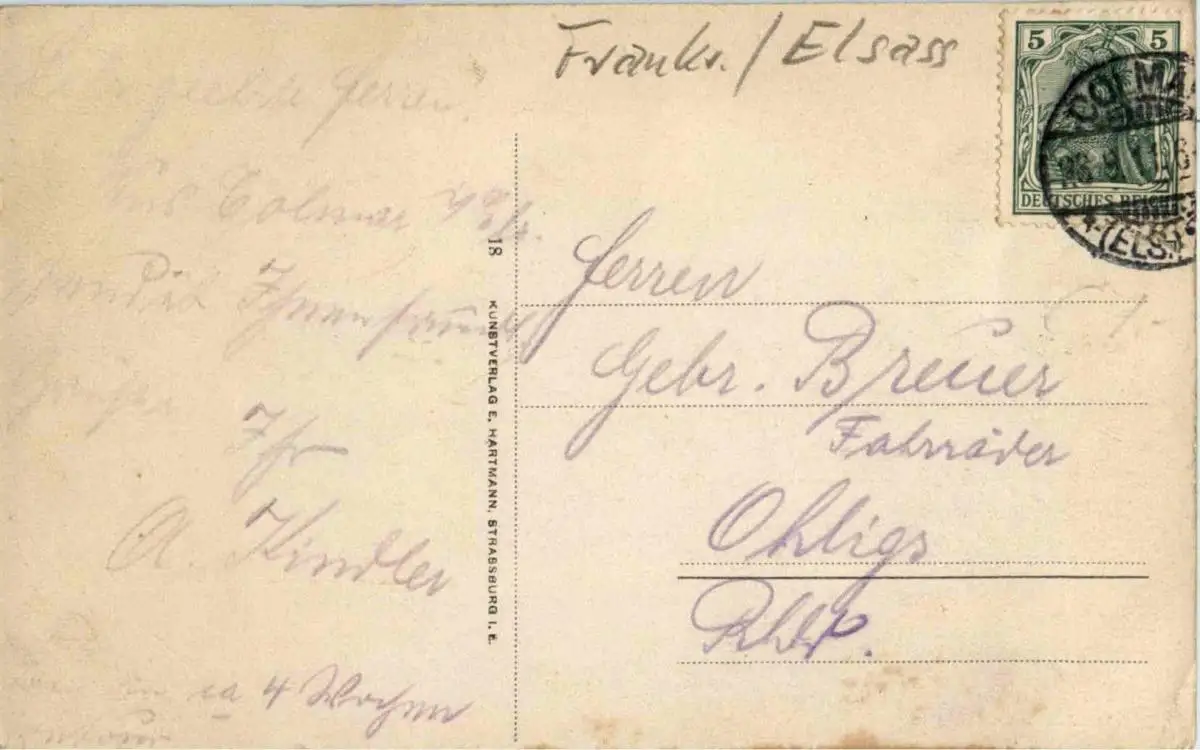 Frankr./Elsass
5 5
DEUTSCHES REICH
COLMAR
(ELS.)
geehrte Herren
Aus Colmar
sendet Ihnen freundl.
Ihr
A. Kindler
in ca 4 Wochen
18 KUNSTVERLAG E. HARTMANN, STRASSBURG I. E.
Herren
Gebr. Breuer
Fahrräder
Ohligs
Rhlp.